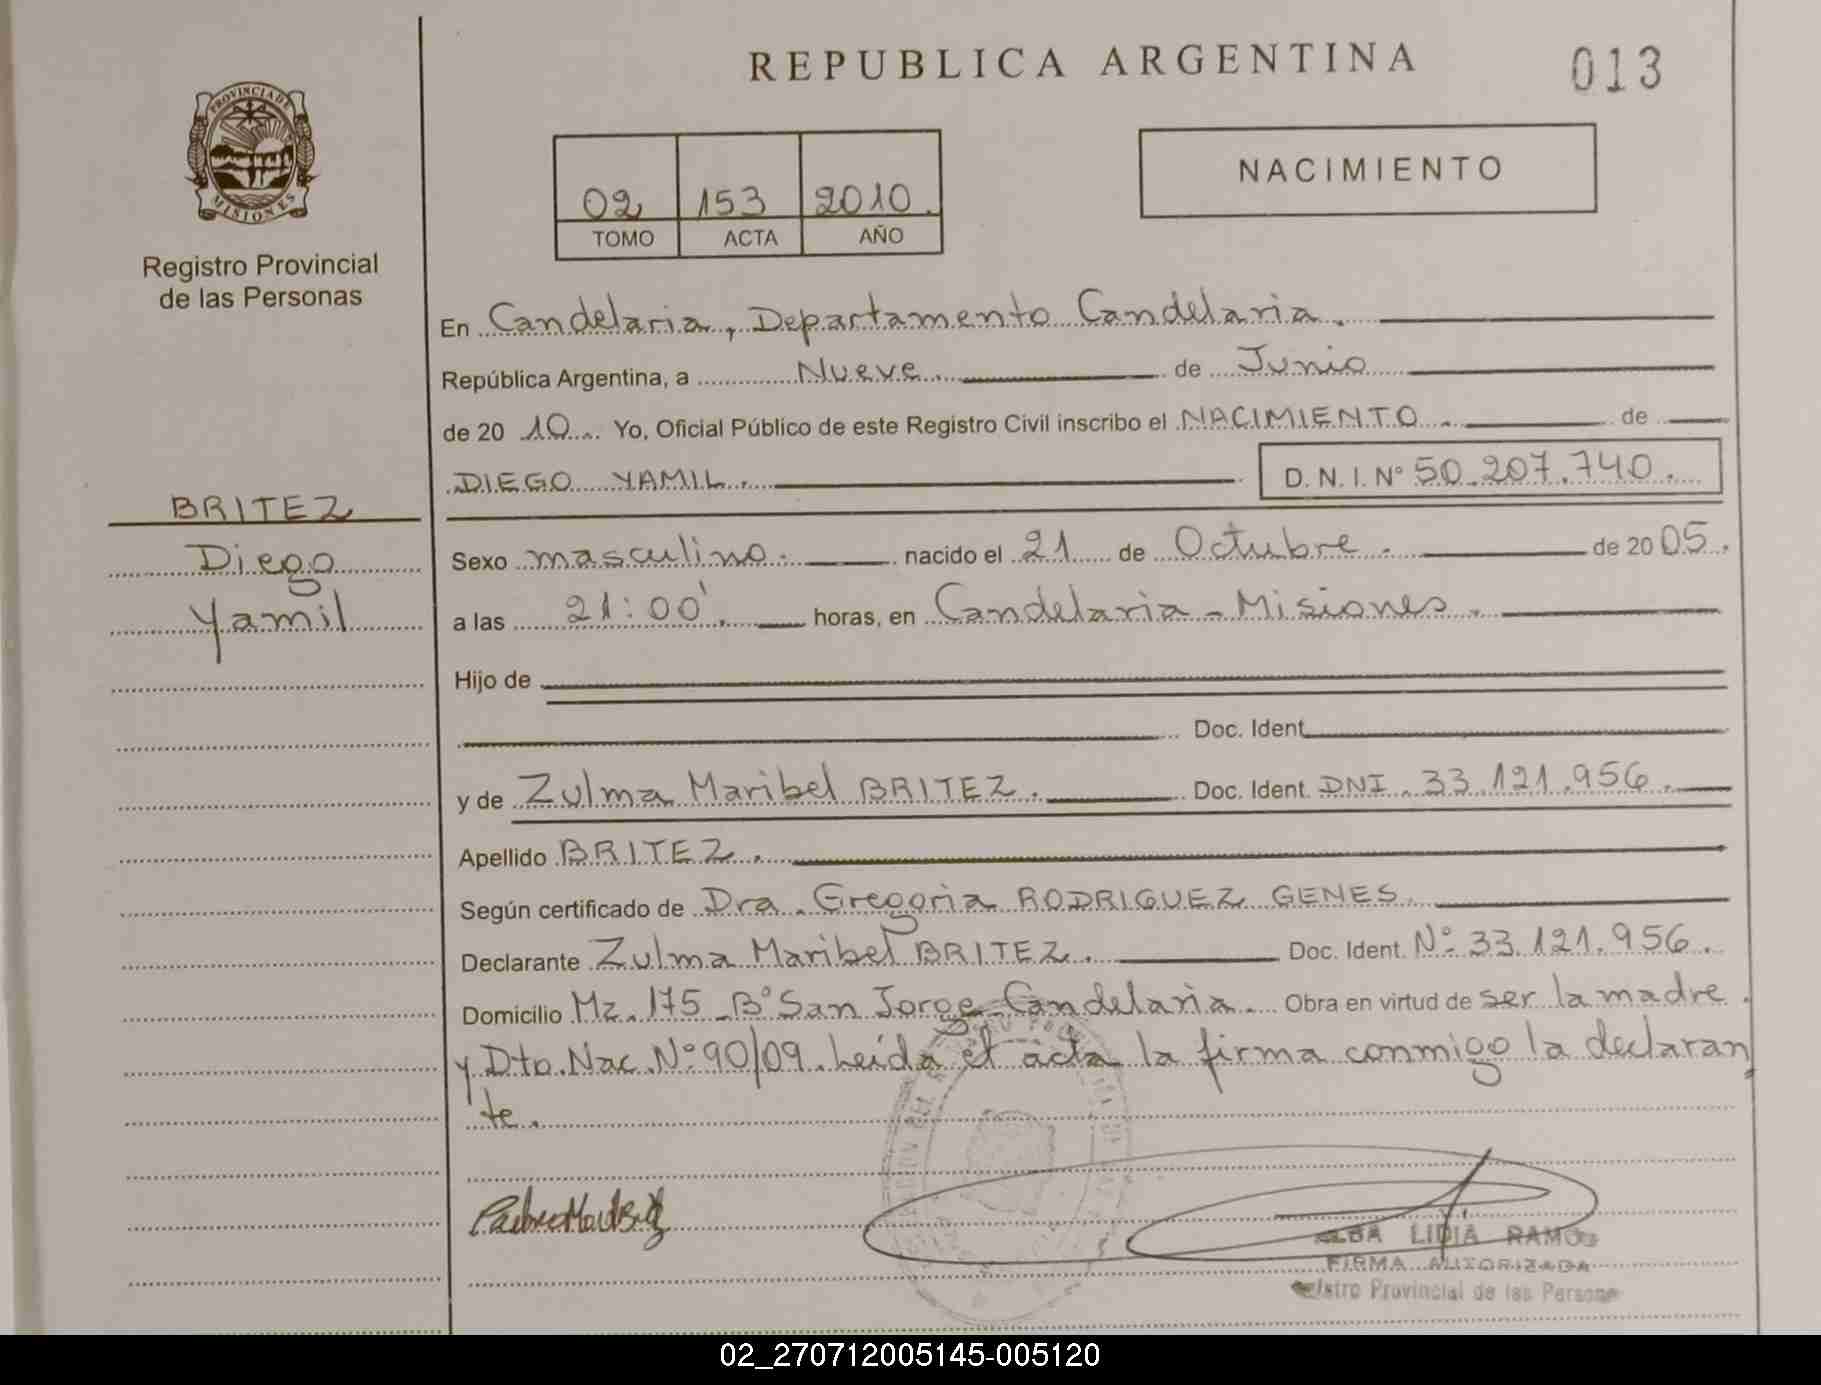 REPUBLICA ARGENTINA
013
PROVINCIA DE
MISIONES
Registro Provincial
de las Personas
02 153 2010.
TOMO ACTA AÑO
NACIMIENTO
En Candelaria, Departamento Candelaria.
República Argentina, a Nueve. de Junio
de 20 10. Yo, Oficial Público de este Registro Civil inscribo el NACIMIENTO. de
DIEGO YAMIL. D. N. I. Nº 50.207.740.
BRITEZ
Diego
Yamil
Sexo masculino. nacido el 21 de Octubre. de 20 05.
a las 21:00'. horas, en Candelaria - Misiones.
Hijo de
Doc. Ident.
y de Zulma Maribel BRITEZ. Doc. Ident. DNI. 33.121.956.
Apellido BRITEZ.
Según certificado de Dra. Gregoria RODRIGUEZ GENES.
Declarante Zulma Maribel BRITEZ. Doc. Ident. Nº 33.121.956.
Domicilio Mz. 175 - Bº San Jorge - Candelaria. Obra en virtud de ser la madre
y Dto. Nac. Nº 90/09. Leída el acta la firma conmigo la declaran
te.
LIDIA RAMOS
FIRMA AUTORIZADA
Provincial de las
02_270712005145-005120